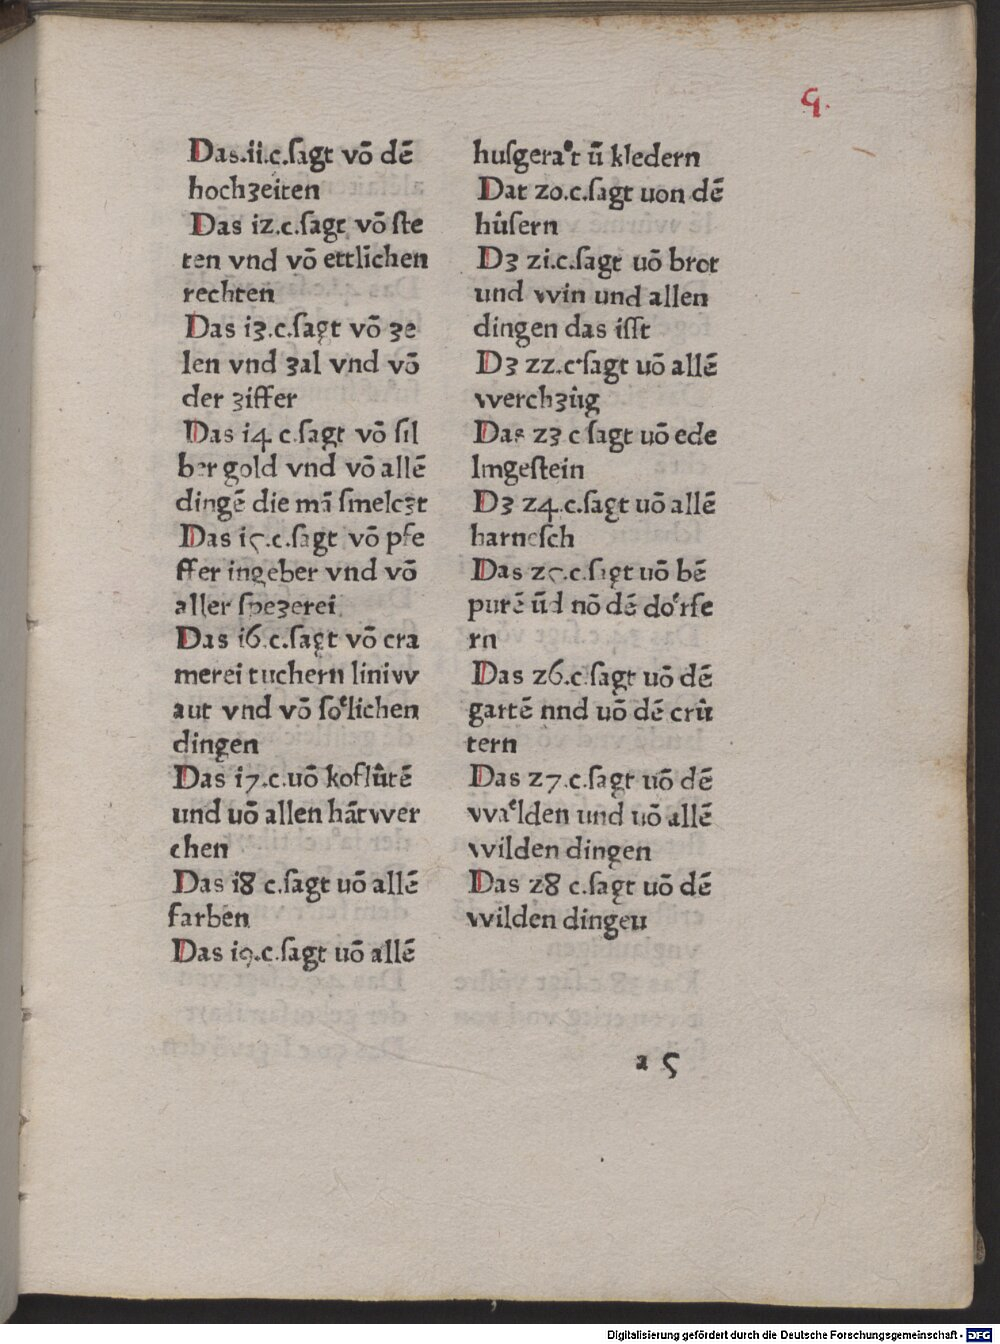 5.
Das.ii.c.ſagt vō dē
hochzeiten
Das iz.c.ſagt vō ſte
ten vnd vō ettlichen
rechten
Das i3.c.ſagt vō ze
len vnd zal vnd vō
der ziffer
Das i4 c.ſagt vō ſil
ber gold vnd vō allē
dingē die mā ſmelczt
Das i5.c.ſagt vō pfe
ffer ingeber vnd vō
aller ſpezerei
Das i6.c.ſagt vō cra
merei tuchern liniw
aut vnd vō ſoͤlichen
dingen
Das i7.c.uō koflûtē
und uō allen hātwer
chen
Das i8 c.ſagt uō allē
farben
Das i9.c.ſagt uō allē
huſgeraͤt ū kledern
Dat zo.c.ſagt uon dē
hûſern
Dz zi.c.ſagt uō brot
und win und allen
dingen das iſſt
Dz zz.c.ſagt uō allē
werchzûg
Das z3 c ſagt uō ede
lmgeſtein
Dz z4.c.ſagt uō allē
harneſch
Das z5.c.ſagt uō bē
purē ūd nō dē doͤrfe
rn
Das z6.c.ſagt uō dē
gartē nnd uō dē crû
tern
Das z7.c.ſagt uō dē
waͤlden und uō allē
wilden dingen
Das z8 c.ſagt uō dē
wilden dingeu
a 5
Digitalisierung gefördert durch die Deutsche Forschungsgemeinschaft - DFG